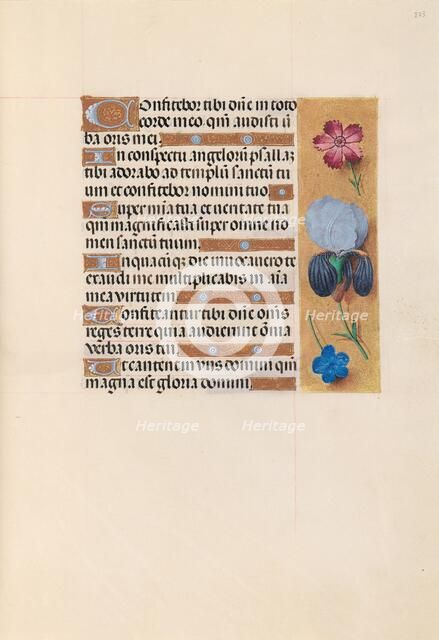 233
Confitebor tibi dñe in toto
corde meo qm̃ audisti ũ
ba oris mei.
In conspectu angelorũ psallaʒ
tibi adorabo ad templũ sanctũ tu
um et confitebor nomini tuo.
Super mĩa tua et ueritate tua
qm̃ magnificasti super omne no
men sanctũ tuum.
In quacũqʒ die inuocauero te
exaudi me multiplicabis in aĩa
mea virtutẽ
Confiteantur tibi dñe om̃s
reges terre quia audierunt om̃a
verba oris tui.
Et cantent in viis domini qm̃
magna est gloria domini.
Heritage
Heritage
Heritage
Heritage
Heritage
Heritage